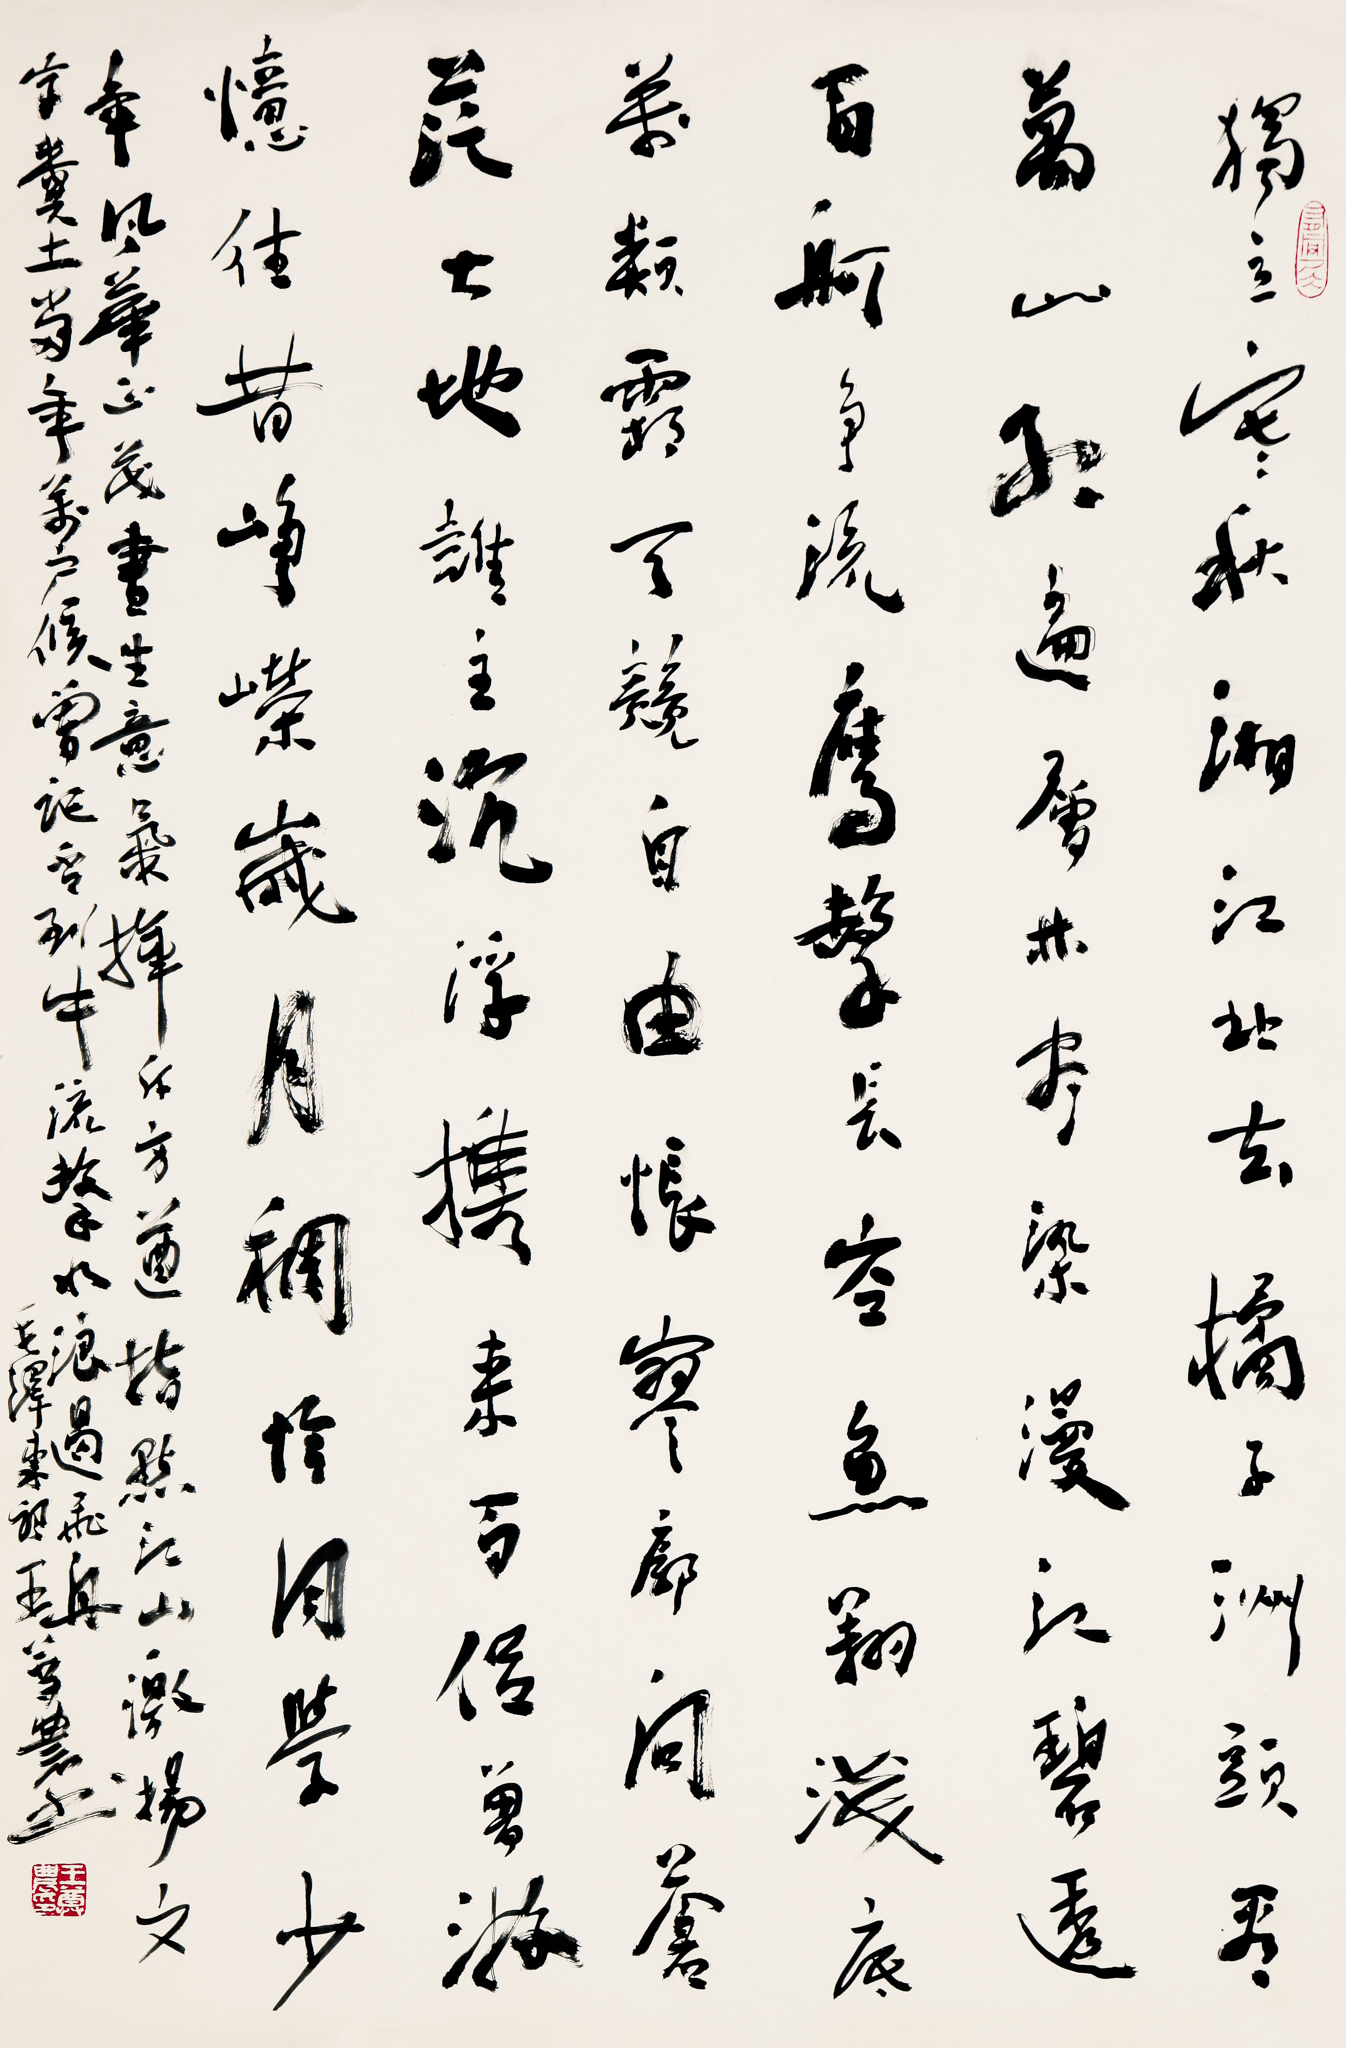 獨立寒秋湘江北去橘子洲頭看
萬山紅遍層林盡染漫江碧透
百舸争流鷹擊長空魚翔淺底
萬類霜天競自由悵寥廓問蒼
茫大地誰主沉浮携来百侣曾游
憶往昔崢嶸歲月稠恰同學少
年風華正茂書生意氣揮斥方遒指點江山激揚文
字糞土當年萬户侯曾記否到中流擊水浪遏飛舟
毛澤東詞王尊農書